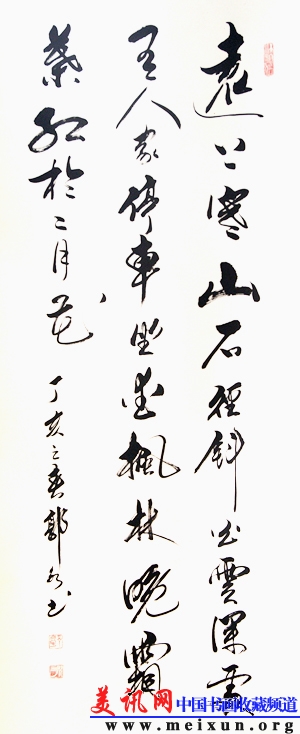 遠上寒山石徑斜白雲深處
有人家停車坐愛楓林晚霜
葉紅於二月花
丁亥之春書
美讯网 中国书画收藏频道
www.meixun.org